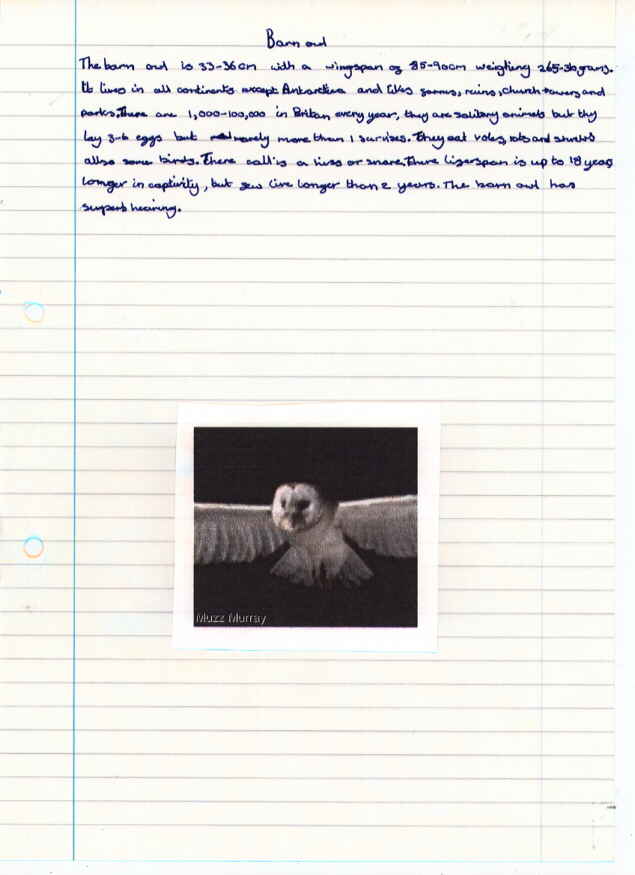 Barn owl
The barn owl is 33-36cm with a wingspan of 85-90cm weighing grams.
It lives in all continents except Antarctica and likes farms, ruins, church towers and
parks. There are 1,000-100,000 in Britan every year, they are solitary animals but thy
lay 3-6 eggs but rarely more than 1 survives. They eat voles, and
allso some birds. There call is a hiss or snore. There lifespan is up to 18 years
longer in captivity, but few live longer than 2 years. The barn owl has
superb hearing.
Muzz Murray